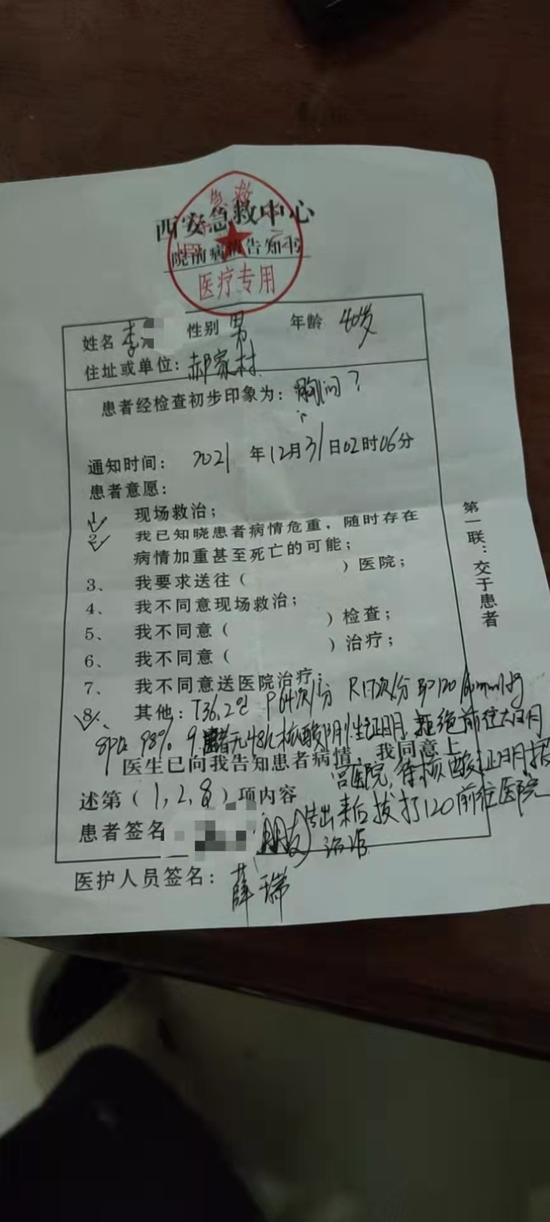 西安急救中心
院前病情告知书
医疗专用
姓名 李 性别 男 年龄 40岁
住址或单位: 郝家村
患者经检查初步印象为: 胸闷?
通知时间: 2021 年 12月 31日 02时 06分
患者意愿:
1、 现场救治;
2、 我已知晓患者病情危重，随时存在
病情加重甚至死亡的可能;
3、 我要求送往( )医院;
4、 我不同意现场救治;
5、 我不同意( )检查;
6、 我不同意( )治疗;
7、 我不同意送医院治疗;
8、 其他: T36.2℃ P64次/分 R17次/分 BP120/ mmHg
spo2 98% 9. 无48h核酸阴性证明, 拒绝前往
医生已向我告知患者病情，我同意上
医院, 待核酸证明报告出来后 拨打120前往医院
述第(1,2,8)项内容
患者签名 (朋友)
医护人员签名: 薛瑞
第一联: 交于患者